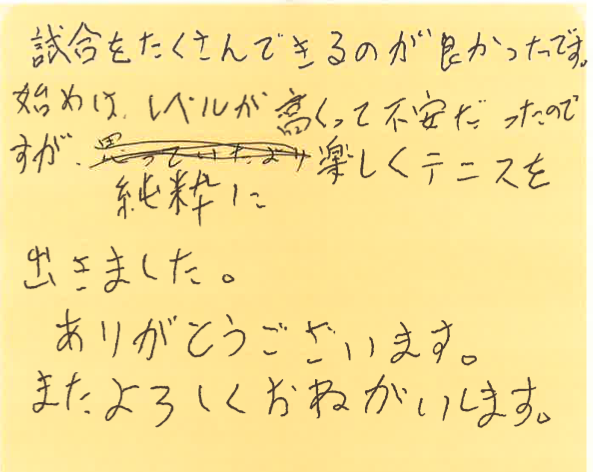 試合をたくさんできるのが良かったです。
始めは、レベルが高くって不安だったので
すが、思っていたより楽しくテニスを
純粋に
出きました。
ありがとうございます。
またよろしくおねがいします。